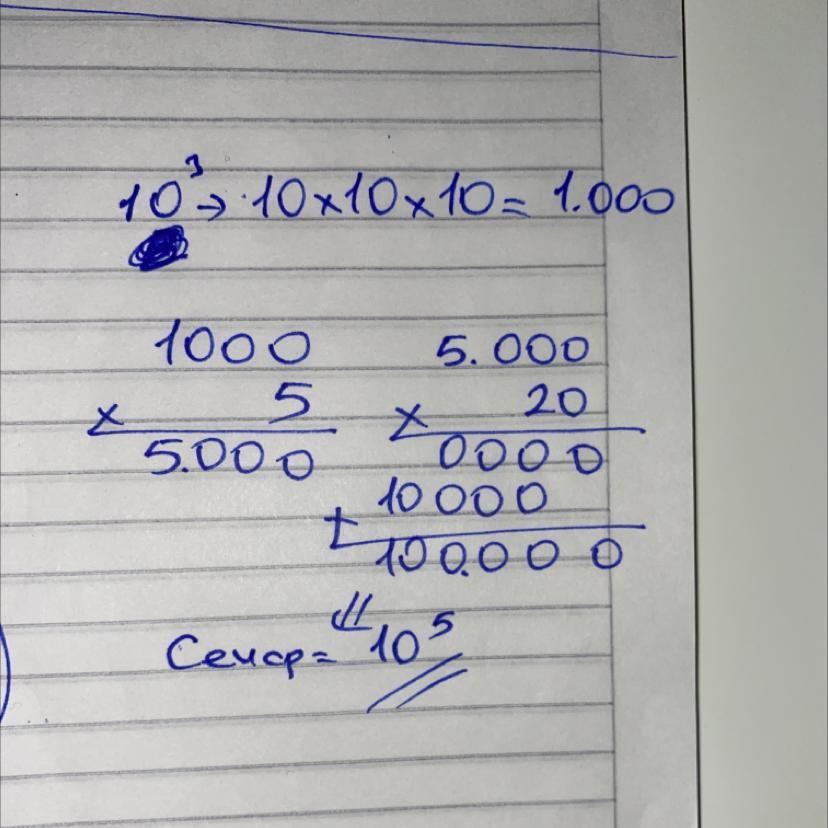 10³ → 10x10x10 = 1.000
1000
x 5
5.000
5.000
x 20
0000
+ 10000
100.000
Cevap = 10⁵